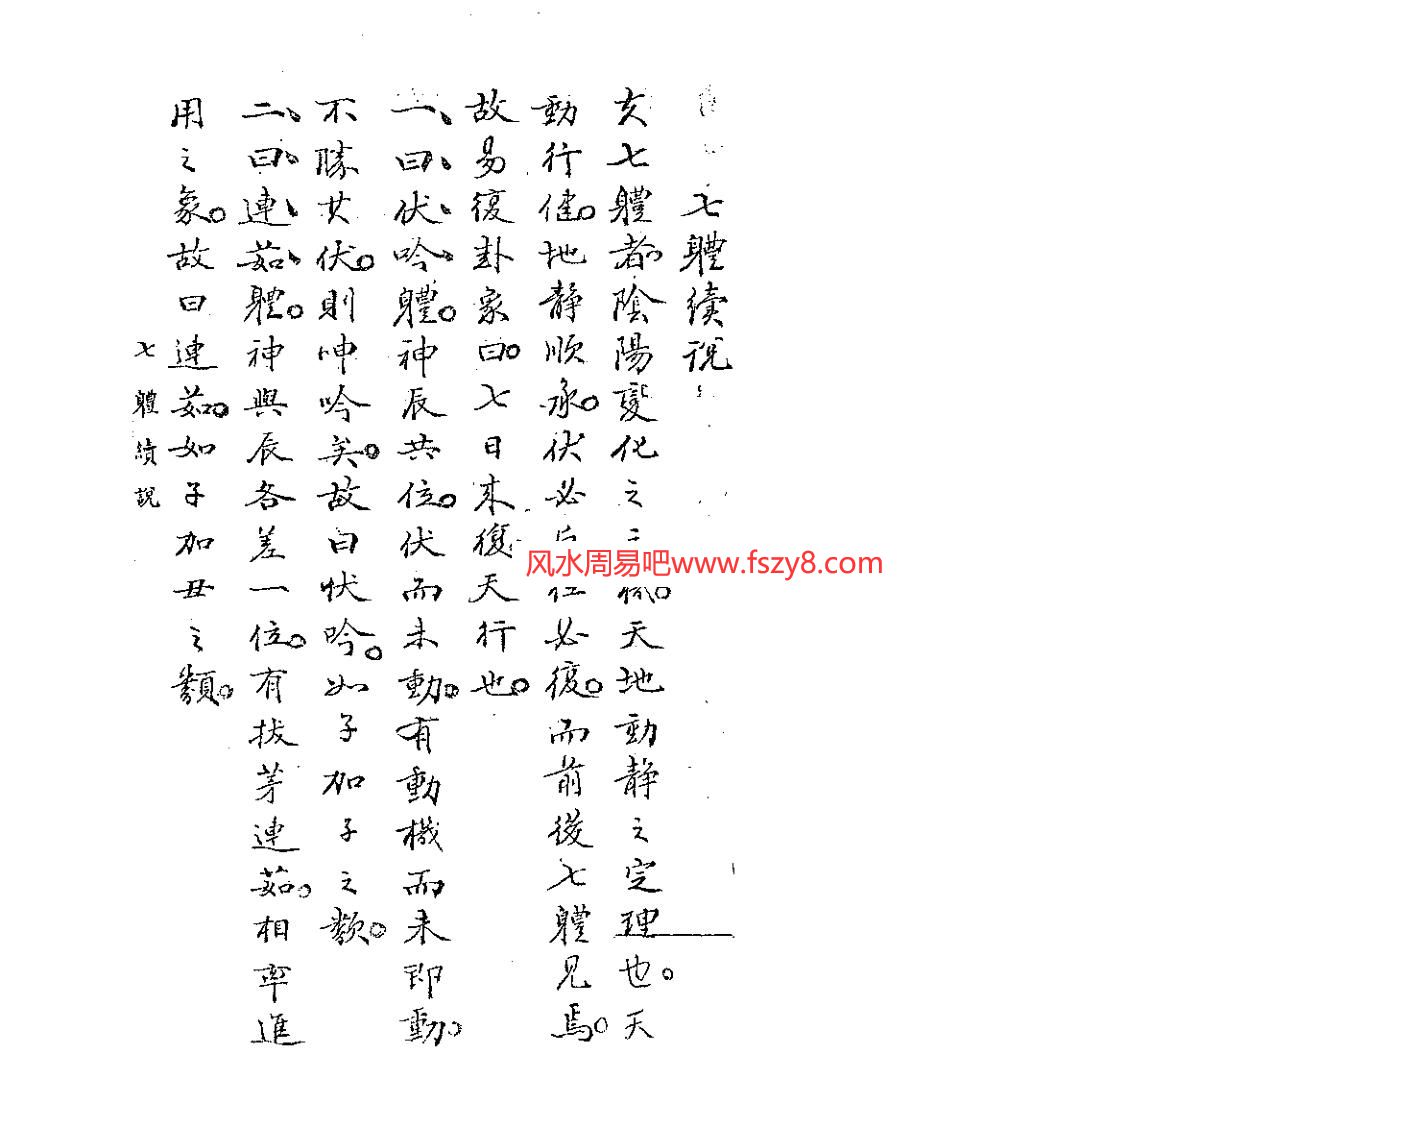 七體續說
亥七體者陰陽變化之天地動静之定理也。天
動行健。地静順承。伏必必復。而前後七體見焉。
故易復卦象曰。七日来復天行也。
一、曰、伏、吟、體。神辰共位。伏而未動。有動機而未即動。
不勝其伏。則呻吟矣。故曰伏吟。如子加子之類。
二、曰、連、茹、體。神與辰各差一位。有拔茅連茹。相率進
用之象。故曰連茹。如子加丑之類。
七體續說
风水周易吧www.fszy8.com